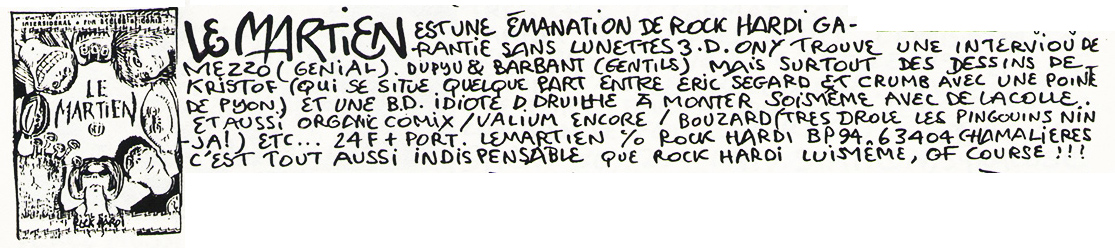 LE
MARTIEN
ROCK HARDI
LE MARTIEN EST UNE ÉMANATION DE ROCK HARDI GA-
-RANTIE SANS LUNETTES 3.D. ONY TROUVE UNE INTERVIOU DE
MEZZO (GENIAL). DUPYU & BARBANT (GENTILS) MAIS SURTOUT DES DESSINS DE
KRISTOF (QUI SE SITUE QUELQUE PART ENTRE ERIC SEGARD ET CRUMB AVEC UNE POINTE
DE PYON) ET UNE B.D. IDIOTE D.DRUILHE A MONTER SOIMÊME AVEC DE LA COLLE..
ET AUSSI ORGANIC COMIX / VALIUM ENCORE / BOUZARD (TRES DROLE LES PINGOUINS NIN
-JA!) ETC... 24F + PORT. LEMARTIEN % ROCK HARDI BP94. 63404 CHAMALIERES
C'EST TOUT AUSSI INDISPENSABLE QUE ROCK HARDI LUIMÊME, OF COURSE !!!